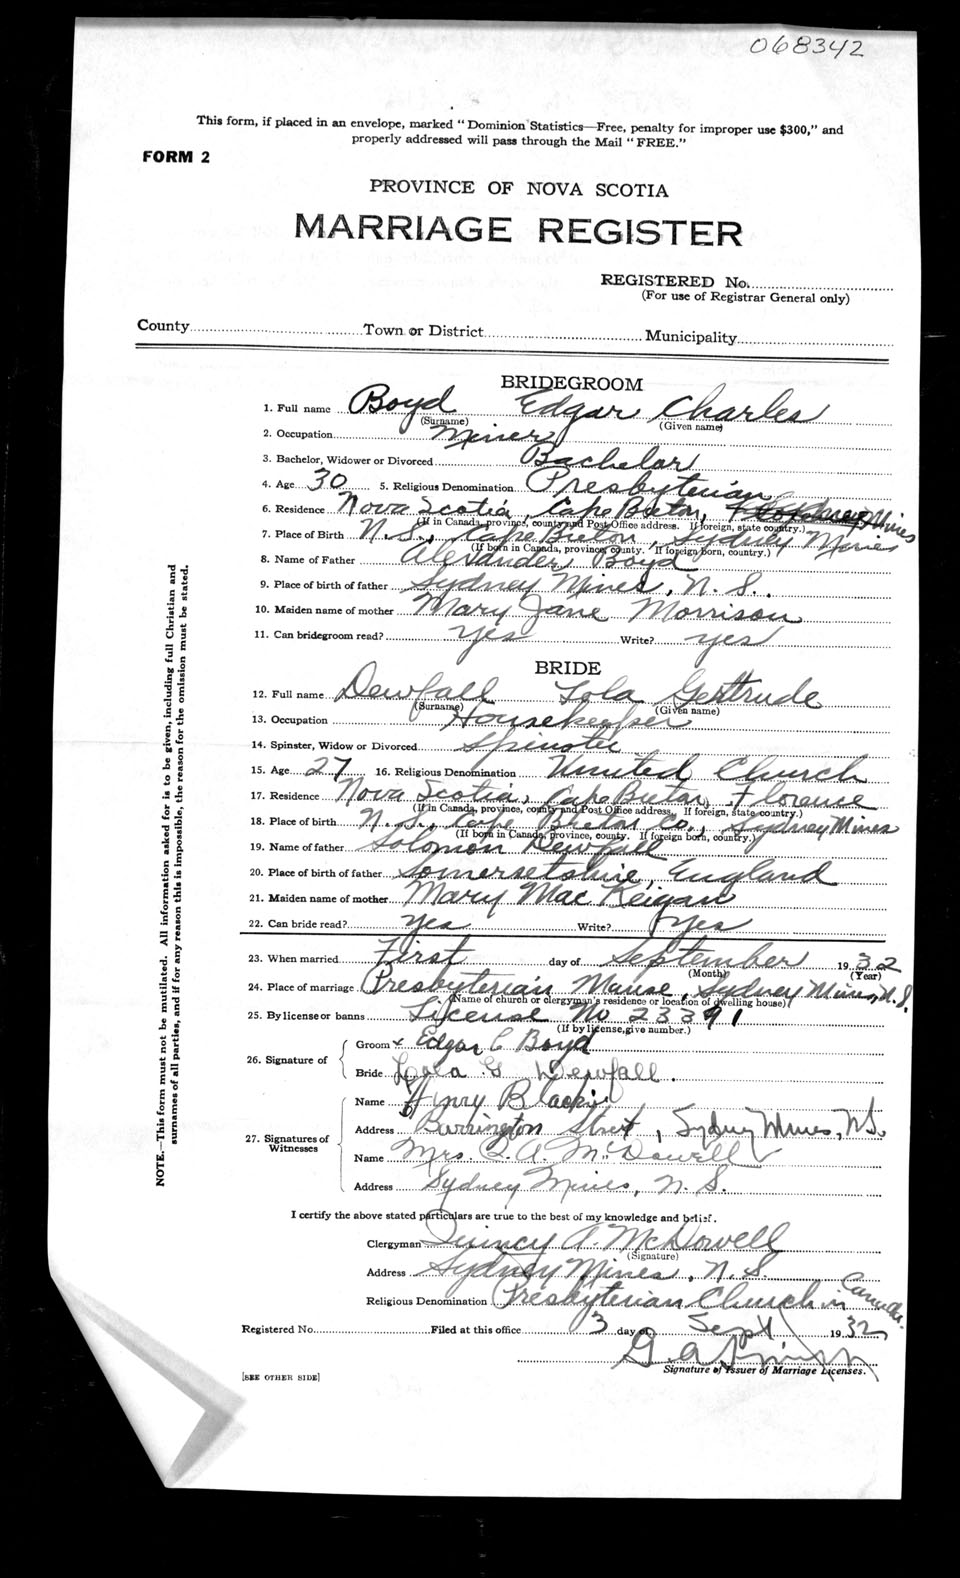 068342
This form, if placed in an envelope, marked "Dominion Statistics—Free, penalty for improper use $300," and
properly addressed will pass through the Mail "FREE."
FORM 2
PROVINCE OF NOVA SCOTIA
MARRIAGE REGISTER
REGISTERED No.
(For use of Registrar General only)
County Town or District Municipality
BRIDEGROOM
1. Full name Boyd Edgar Charles
(Surname) (Given name)
2. Occupation Miner
3. Bachelor, Widower or Divorced Bachelor
4. Age 30 5. Religious Denomination Presbyterian
6. Residence Nova Scotia, Cape Breton, Sydney Mines
(If in Canada, province, county and Post Office address. If foreign, state country.)
7. Place of Birth N.S., Cape Breton, Sydney Mines
(If born in Canada, province, county. If foreign born, country.)
8. Name of Father Alexander Boyd
9. Place of birth of father Sydney Mines, N.S.
10. Maiden name of mother Mary Jane Morrison
11. Can bridegroom read? yes Write? yes
BRIDE
12. Full name Dewfall Lola Gertrude
(Surname) (Given name)
13. Occupation Housekeeper
14. Spinster, Widow or Divorced Spinster
15. Age 27 16. Religious Denomination United Church
17. Residence Nova Scotia, Cape Breton, Florence
(If in Canada, province, county and Post Office address. If foreign, state country.)
18. Place of birth N.S., Cape Breton Co., Sydney Mines
(If born in Canada, province, county. If foreign born, country.)
19. Name of father Solomon Dewfall
20. Place of birth of father Somersetshire, England
21. Maiden name of mother Mary MacKeigan
22. Can bride read? yes Write? yes
23. When married First day of September 1932
(Month) (Year)
24. Place of marriage Presbyterian Manse, Sydney Mines, N.S.
(Name of church or clergyman's residence or location of dwelling house)
25. By license or banns License No 23391
(If by license, give number.)
26. Signature of Groom x Edgar C Boyd
Bride Lola G Dewfall.
27. Signatures of Witnesses Name Henry Blackie
Address Barrington Street, Sydney Mines, N.S.
Name Mrs. Q. A. McDowell
Address Sydney Mines, N.S.
I certify the above stated particulars are true to the best of my knowledge and belief.
Clergyman Quincy A. McDowell
(Signature)
Address Sydney Mines, N.S.
Religious Denomination Presbyterian Church in Canada.
Registered No. Filed at this office 3 day of Sept 1932
G. A.
Signature of Issuer of Marriage Licenses.
[SEE OTHER SIDE]
NOTE.—This form must not be mutilated. All information asked for is to be given, including full Christian and
surnames of all parties, and if for any reason this is impossible, the reason for the omission must be stated.